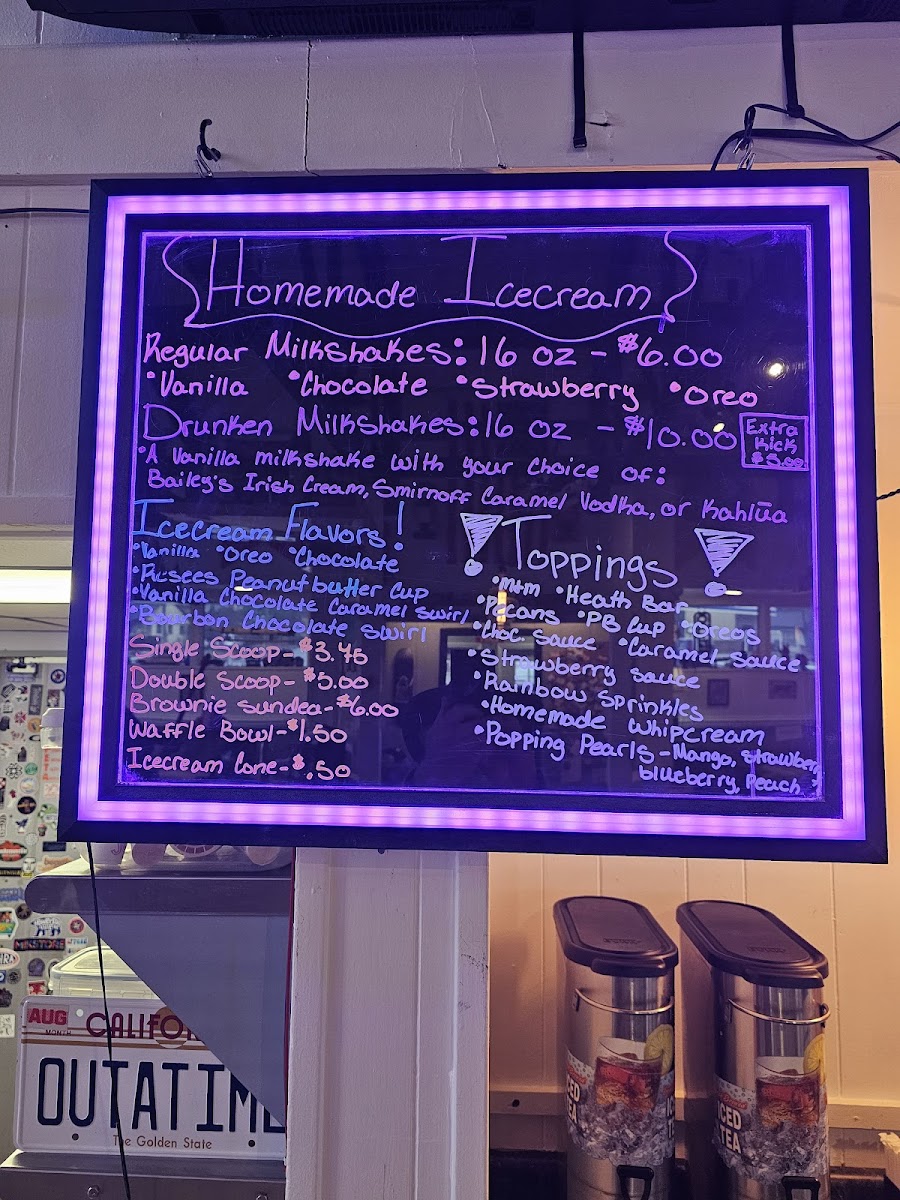 Homemade Icecream
Regular Milkshakes: 16 oz - $6.00
•Vanilla •Chocolate •Strawberry •Oreo
Drunken Milkshakes: 16 oz - $10.00
Extra
Kick
$5.00
•A Vanilla milkshake with your choice of:
Bailey's Irish Cream, Smirnoff Caramel Vodka, or Kahlūa
Icecream Flavors!
•Vanilla •Oreo •Chocolate
•Resees Peanut butter Cup
•Vanilla Chocolate Caramel swirl
•Bourbon Chocolate swirl
Single Scoop - $3.45
Double Scoop - $5.00
Brownie sundea - $6.00
Waffle Bowl - $1.50
Icecream Cone - $.50
! Toppings !
•m+m •Heath Bar
•Pecans •PB Cup •Oreos
•Choc. Sauce •Caramel sauce
•Strawberry sauce
•Rainbow Sprinkles
•Homemade whipcream
•Popping Pearls - Mango, Strawberry,
blueberry, Peach
AUG
MONTH
CALIFO
OUTATIM
The Golden State
ICED
TEA
ICED
TEA